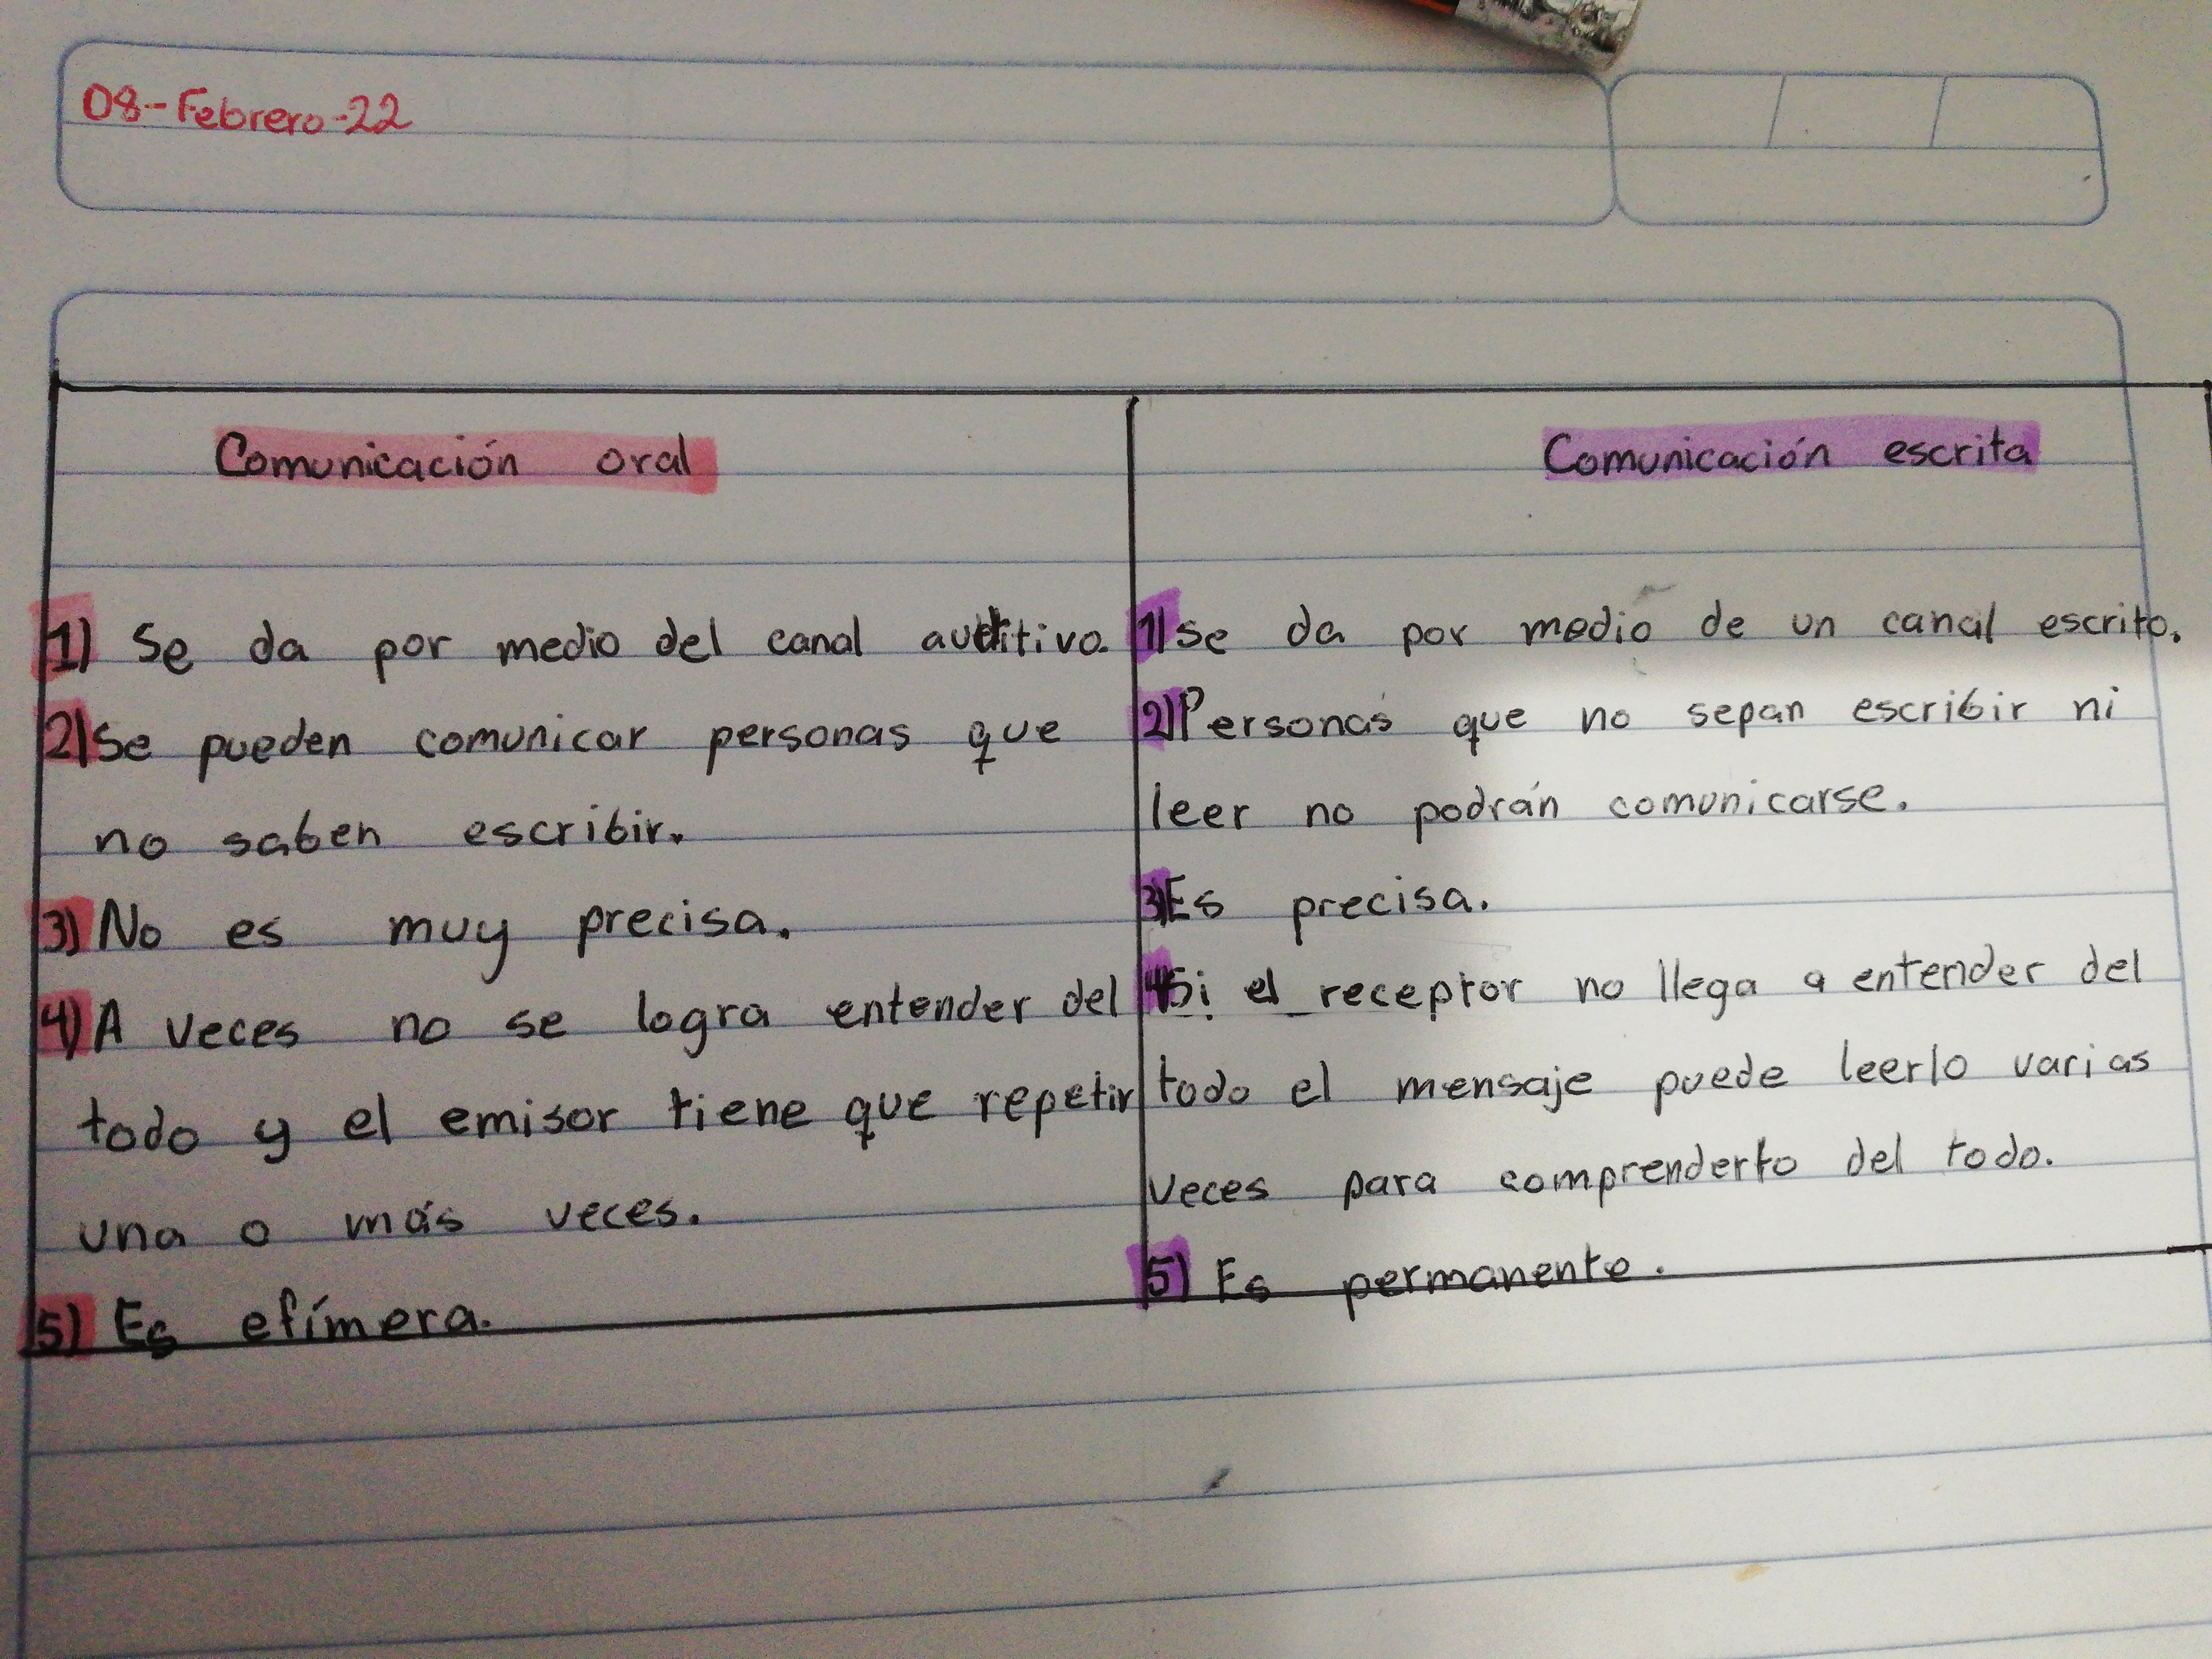 08-Febrero-22
Comunicación oral
1) Se da por medio del canal auditivo.
2) Se pueden comunicar personas que
no saben escribir.
3) No es muy precisa.
4) A veces no se logra entender del
todo y el emisor tiene que repetir
una o más veces.
5) Es efímera.
Comunicación escrita
1) Se da por medio de un canal escrito.
2) Personas que no sepan escribir ni
leer no podrán comunicarse.
3) Es precisa.
4) Si el receptor no llega a entender del
todo el mensaje puede leerlo varias
veces para comprenderlo del todo.
5) Es permanente.